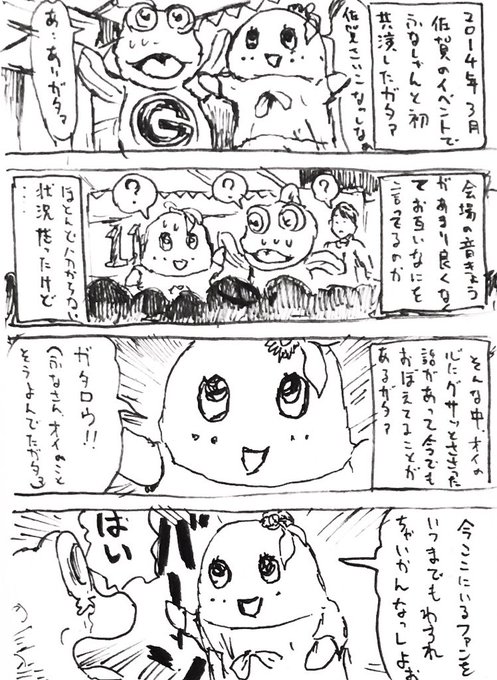 2014年3月
佐賀のイベントで
ふなしゃんと初
共演したガタァ
佐賀さいこーなっしな
G
あ…あいがタァ
会場の音きょう
があまり良くな
てお互いなにを
言ってるのか
?
?
?
ほとんどハカからない
状況だったけど
……
そんな中、オイの
心にグサッとささった
話があって今でも
おぼえてることが
あるガタァ
ガタロウ!!
(ふなさん、オイのこと
そうよんでたガタ)
今ここにいるファンを
いつまでもわすれ
ちゃいかんなっしよお
バーン
はい